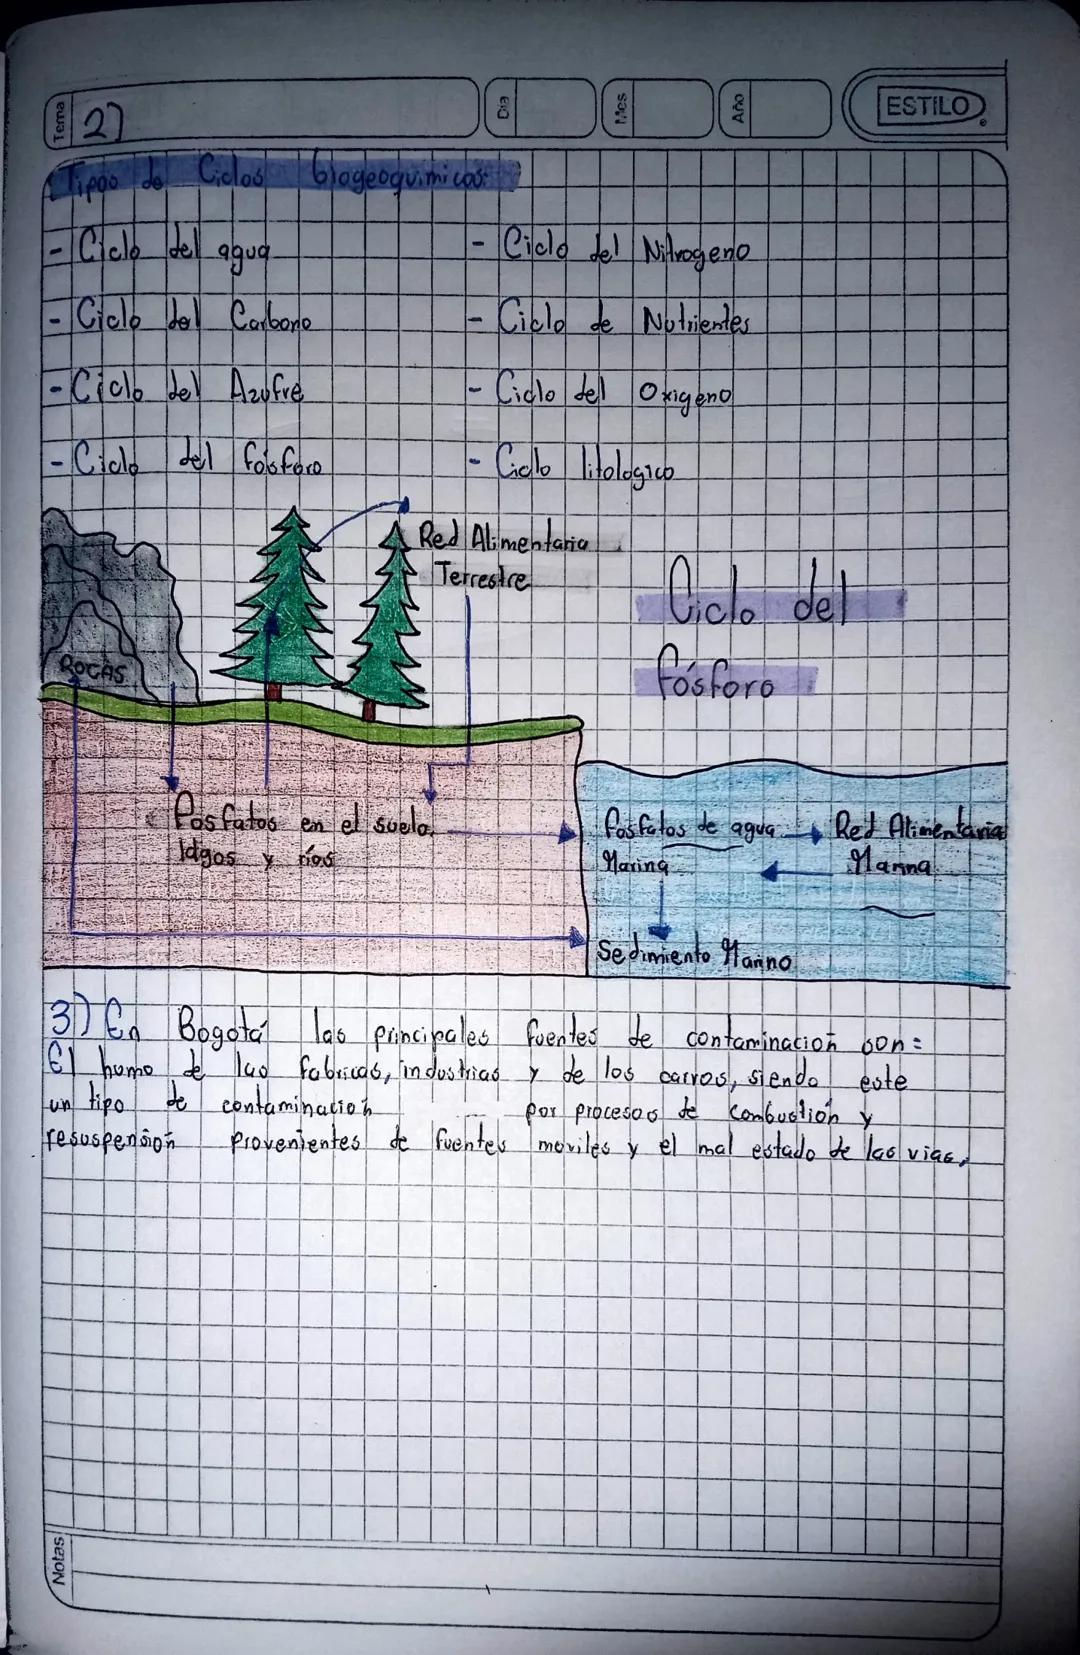 Tema
2)
Dia
Mes
Año
ESTILO
Tipos de Ciclos biogeoquimicos:
- Ciclo del agua
- Ciclo del Nitrogeno
- Ciclo del Carbono
- Ciclo de Nutrientes
- Ciclo del Azufre
- Ciclo del Oxigeno
- Ciclo del fósforo
- Ciclo litologico
Red Alimentaria
Terrestre
Ciclo del
fósforo
ROCAS
Fosfatos en el suelo,
lagos y ríos
fosfatos de agua
Marina
Red Alimentaria
Marina
Sedimiento Marino
3) En Bogotá las principales fuentes de contaminación son:
El humo de las fabricas, industrias y de los carros, siendo este
un tipo de contaminación por procesos de combustión y
resuspensión provenientes de fuentes moviles y el mal estado de las vias.
Notas